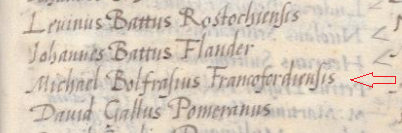 Levinus Battus Rostochiensis
Johannes Battus Flander
Michael Bolfrasius Francofordiensis
David Gallus Pomeranus